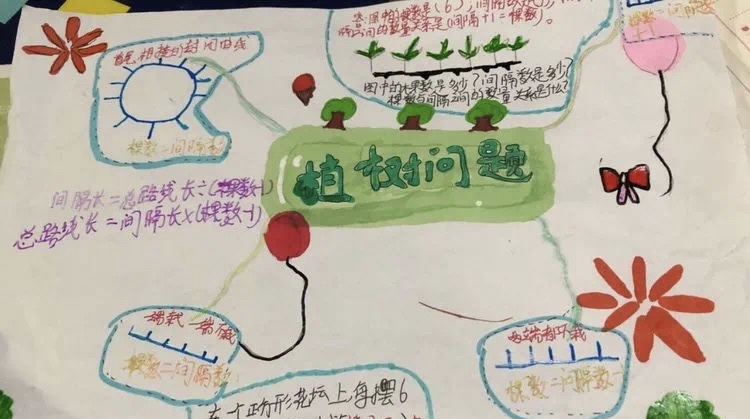 答:图中的棵数是(6),间隔
之间的数量关系是(间隔+1=棵数)。
图中的棵数是多少?间隔数是多少?
棵数与间隔之间的数量关系是什么?
首尾相接的封闭曲线
棵数=间隔数
植树问题
间隔长=总路线长÷(棵数-1)
总路线长=间隔长×(棵数-1)
一端栽 一端不栽
棵数=间隔数
两端都不栽
棵数=间隔数-1
在一个正方形花坛上每摆6